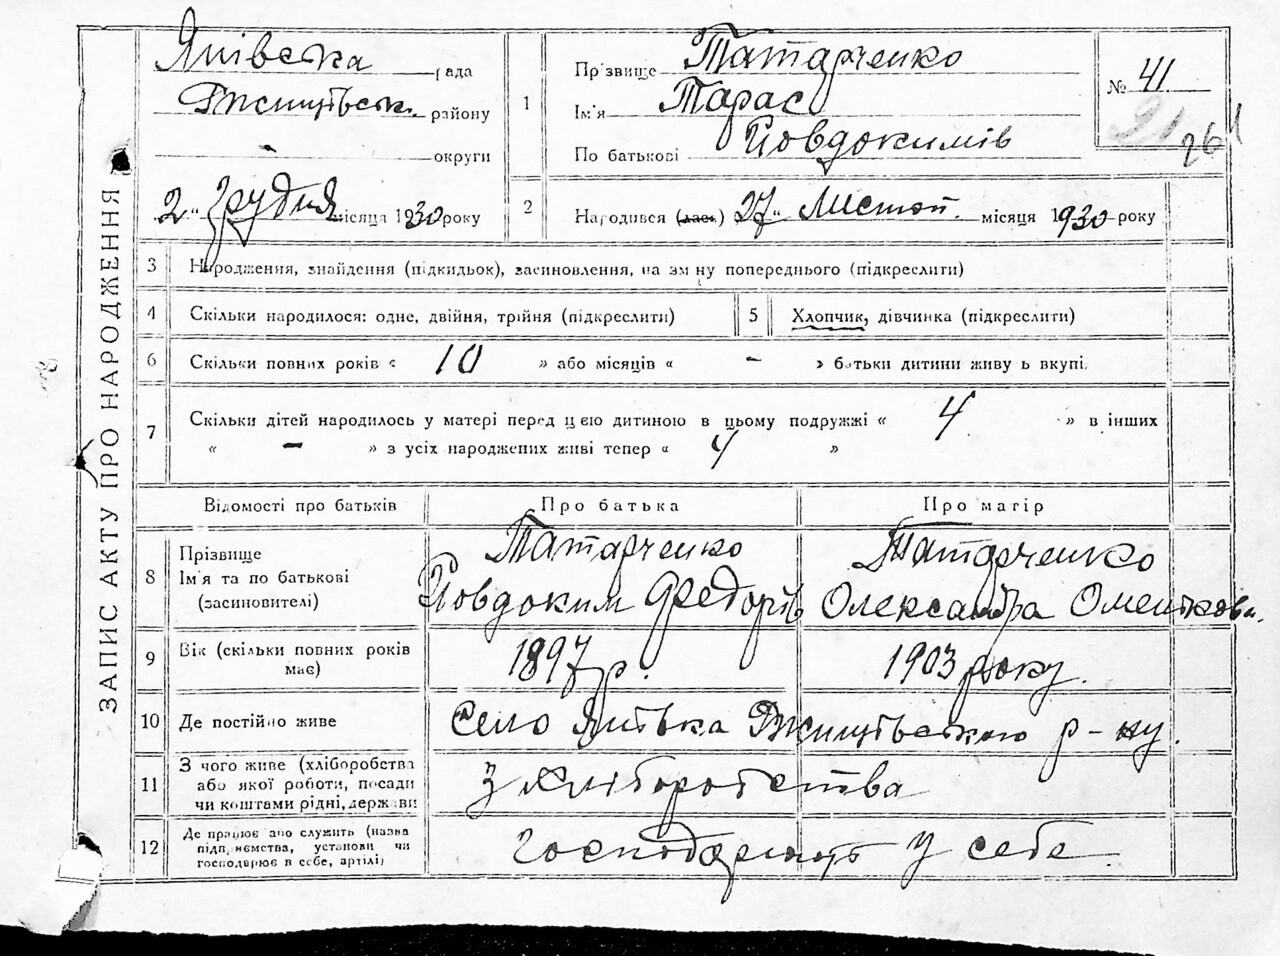 ЗАПИС АКТУ ПРО НАРОДЖЕННЯ
рада
району
округи
2 " Грудня місяця 1930 року
1
Прізвище Татарченко
Ім'я Тарас
По батькові Йовдокимів
№ 41
2
Народився (лась) 27 " Листоп. місяця 1930 року
3 Народження, знайдення (підкидьок), засиновлення, на зм ну попереднього (підкреслити)
4 Скільки народилося: одне, двійня, трійня (підкреслити)
5 Хлопчик, дівчинка (підкреслити)
6 Скільки повних років « 10 » або місяців « - » батьки дитини живу ь вкупі
7 Скільки дітей народилось у матері перед цією дитиною в цьому подружжі « 4 » в інших
« - » з усіх народжених живі тепер « 4 »
Відомості про батьків Про батька Про матір
8 Прізвище Татарченко Татарченко
Ім'я та по батькові Йовдоким Федорів Олександра
(засиновителі)
9 Вік (скільки повних років має) 1897 р. 1903 року.
10 Де постійно живе Село р-ну.
11 З чого живе (хліборобства або якої роботи, посади чи коштами рідні, держави З хліборобства
12 Де працює або служить (назва підп,иємства, установи чи господарює в себе, артілі) Господарюють у себе.